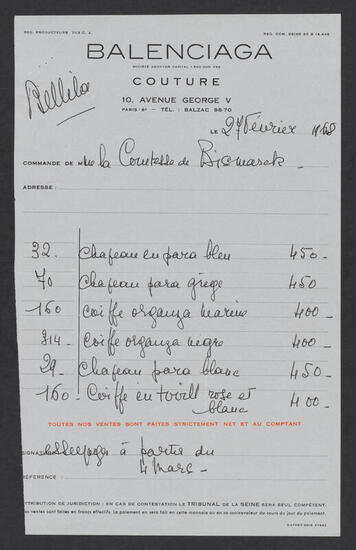 REG. PRODUCTEURS 7113 C. A.
REG. COM. SEINE
BALENCIAGA
SOCIÉTÉ ANONYME CAPITAL
COUTURE
10. AVENUE GEORGE V
PARIS-8e - TÉL. : BALZAC 98-70
LE 27 Février 1968
COMMANDE DE Mme la Comtesse de Bismarck
ADRESSE :
32. Chapeau en para bleu 450-
70 Chapeau para grège 450
160 Coiffe organza marine 400-
314- Coiffe organza negre 400-
29- Chapeau para blanc 450-
160- Coiffe en twill rose et blanc 400-
TOUTES NOS VENTES SONT FAITES STRICTEMENT NET ET AU COMPTANT
à partir du
4 Mars-
RÉFÉRENCE :
ATTRIBUTION DE JURIDICTION : EN CAS DE CONTESTATION LE TRIBUNAL DE LA SEINE SERA SEUL COMPÉTENT.
ventes sont faites en francs effectifs. Le paiement en sera fait en cette monnaie ou en sa contrevaleur du cours du jour du paiement.